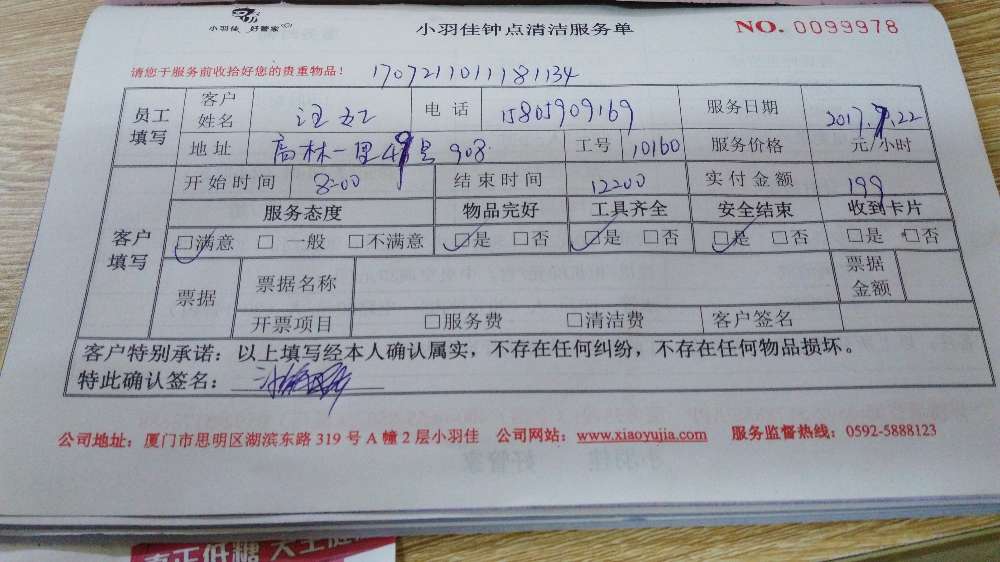 小羽佳 好管家
小羽佳钟点清洁服务单
NO. 0099978
请您于服务前收拾好您的贵重物品！ 1707211011181134
员工填写 客户姓名 汪红 电话 15805909169 服务日期 2017.7.22
地址 高林一里49号 908 工号 10160 服务价格 元/小时
客户填写 开始时间 8:00 结束时间 12:00 实付金额 199
服务态度 物品完好 工具齐全 安全结束 收到卡片
□满意 □一般 □不满意 □是 □否 □是 □否 □是 □否 □是 □否
票据 票据名称 票据金额
开票项目 □服务费 □清洁费 客户签名
客户特别承诺：以上填写经本人确认属实，不存在任何纠纷，不存在任何物品损坏。
特此确认签名：
公司地址：厦门市思明区湖滨东路 319 号 A 幢 2 层小羽佳 公司网站：www.xiaoyujia.com 服务监督热线：0592-5888123
真正低糖